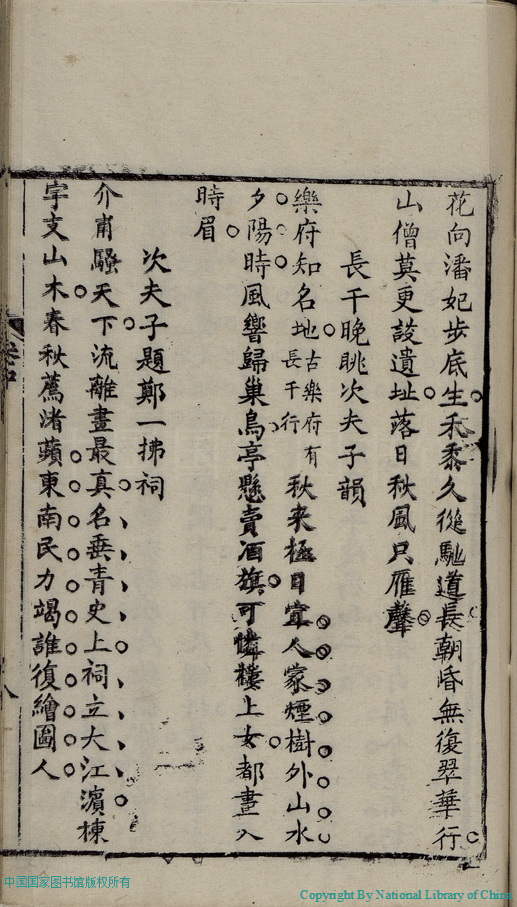 花向潘妃步底生禾黍久從馳道長朝昏無復翠華行
山僧莫更設遺址落日秋風只雁聲
長干晚眺次夫子韻
樂府知名地古樂府有長干行秋來極目宜人家煙樹外山水
夕陽時風響歸巢鳥亭懸賣酒旗可憐樓上女都畫入
時眉
次夫子題鄭一拂祠
介甫騷天下流離畫最真名垂青史上祠立大江濵棟
宇支山木春秋薦渚蘋東南民力竭誰復繪圖人
中国国家图书馆版权所有
Copyright By National Library of China